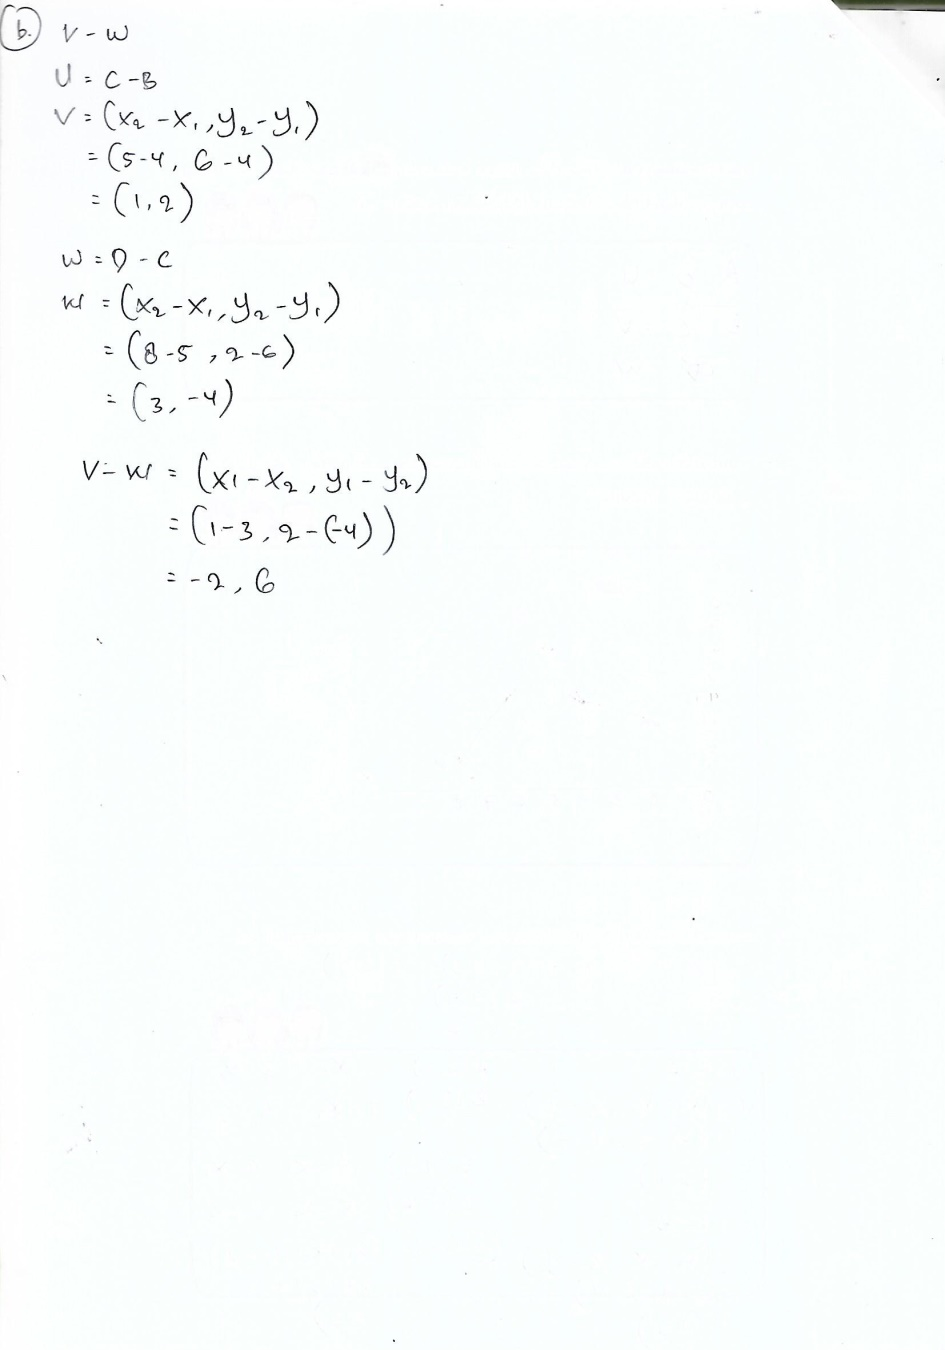 b. V - W
U = C - B
V = (x₂ - x₁, y₂ - y₁)
= (5-4, 6-4)
= (1,2)
W = D - C
W = (x₂ - x₁, y₂ - y₁)
= (8-5, 2-6)
= (3, -4)
V - W = (x1 - x₂, y₁ - y₂)
= (1-3, 2-(-4))
= -2, 6